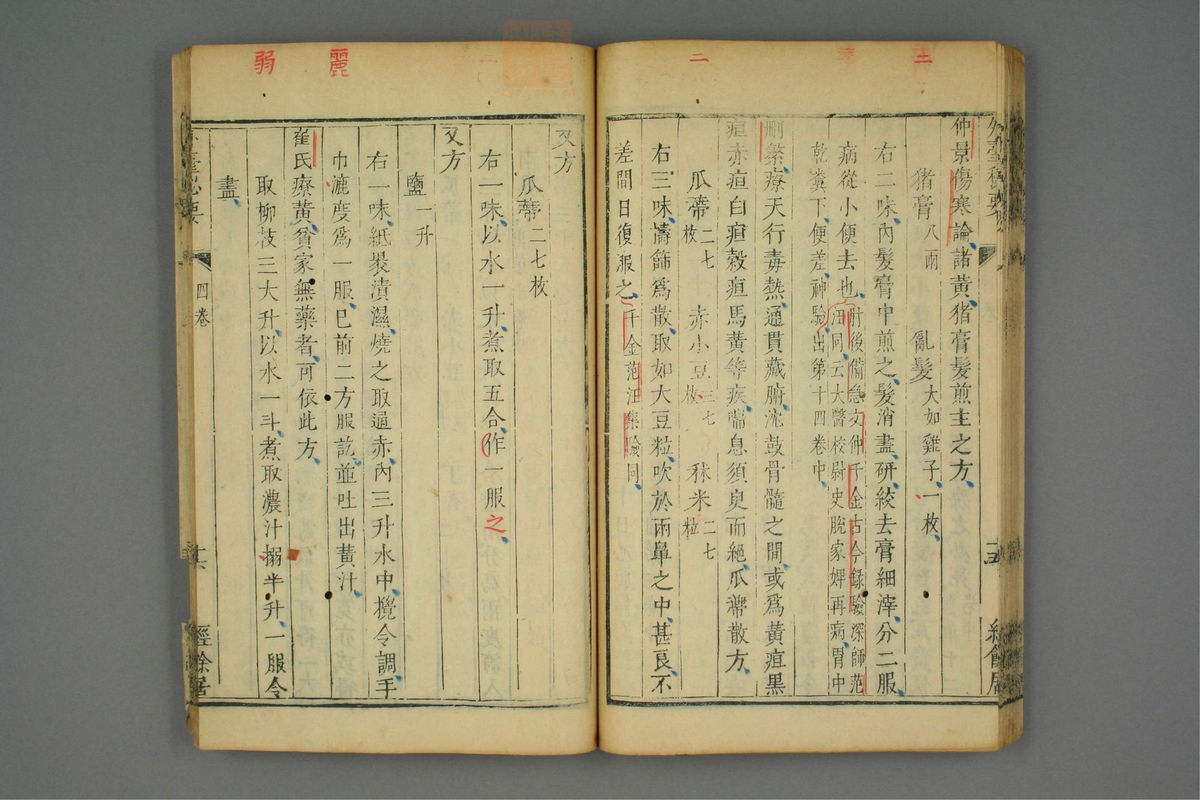 二
三
仲景傷寒論諸黃猪膏髮煎主之方
猪膏八兩 亂髮大如雞子一枚
右二味內髮膏中煎之髮消盡研絞去膏細滓分二服
病從小便去也肘後備急文仲千金古今錄驗深師范
汪同云大醫校尉史脫家婢再病胃中
乾糞下便差神驗出第十四卷中
刪繁療天行毒熱通貫藏腑沈鼓骨髓之間或為黃疸黑
疸赤疸白疸穀疸馬黃等疾喘息須臾而絕瓜蔕散方
瓜蔕二七枚 赤小豆三七枚 秫米二七粒
右三味擣篩為散取如大豆粒吹於兩鼻之中甚良不
差間日復服之千金范汪集驗同
十五
經餘居
麗
弱
又方
瓜蔕二七枚
右一味以水一升煮取五合作一服之
又方
鹽一升
右一味紙裹漬濕燒之取通赤內三升水中攪令調手
巾漉度為一服已前二方服訖並吐出黃汁
崔氏療黃貧家無藥者可依此方
取柳枝三大升以水一斗煮取濃汁搦半升一服令
盡
四卷
十六
經餘居